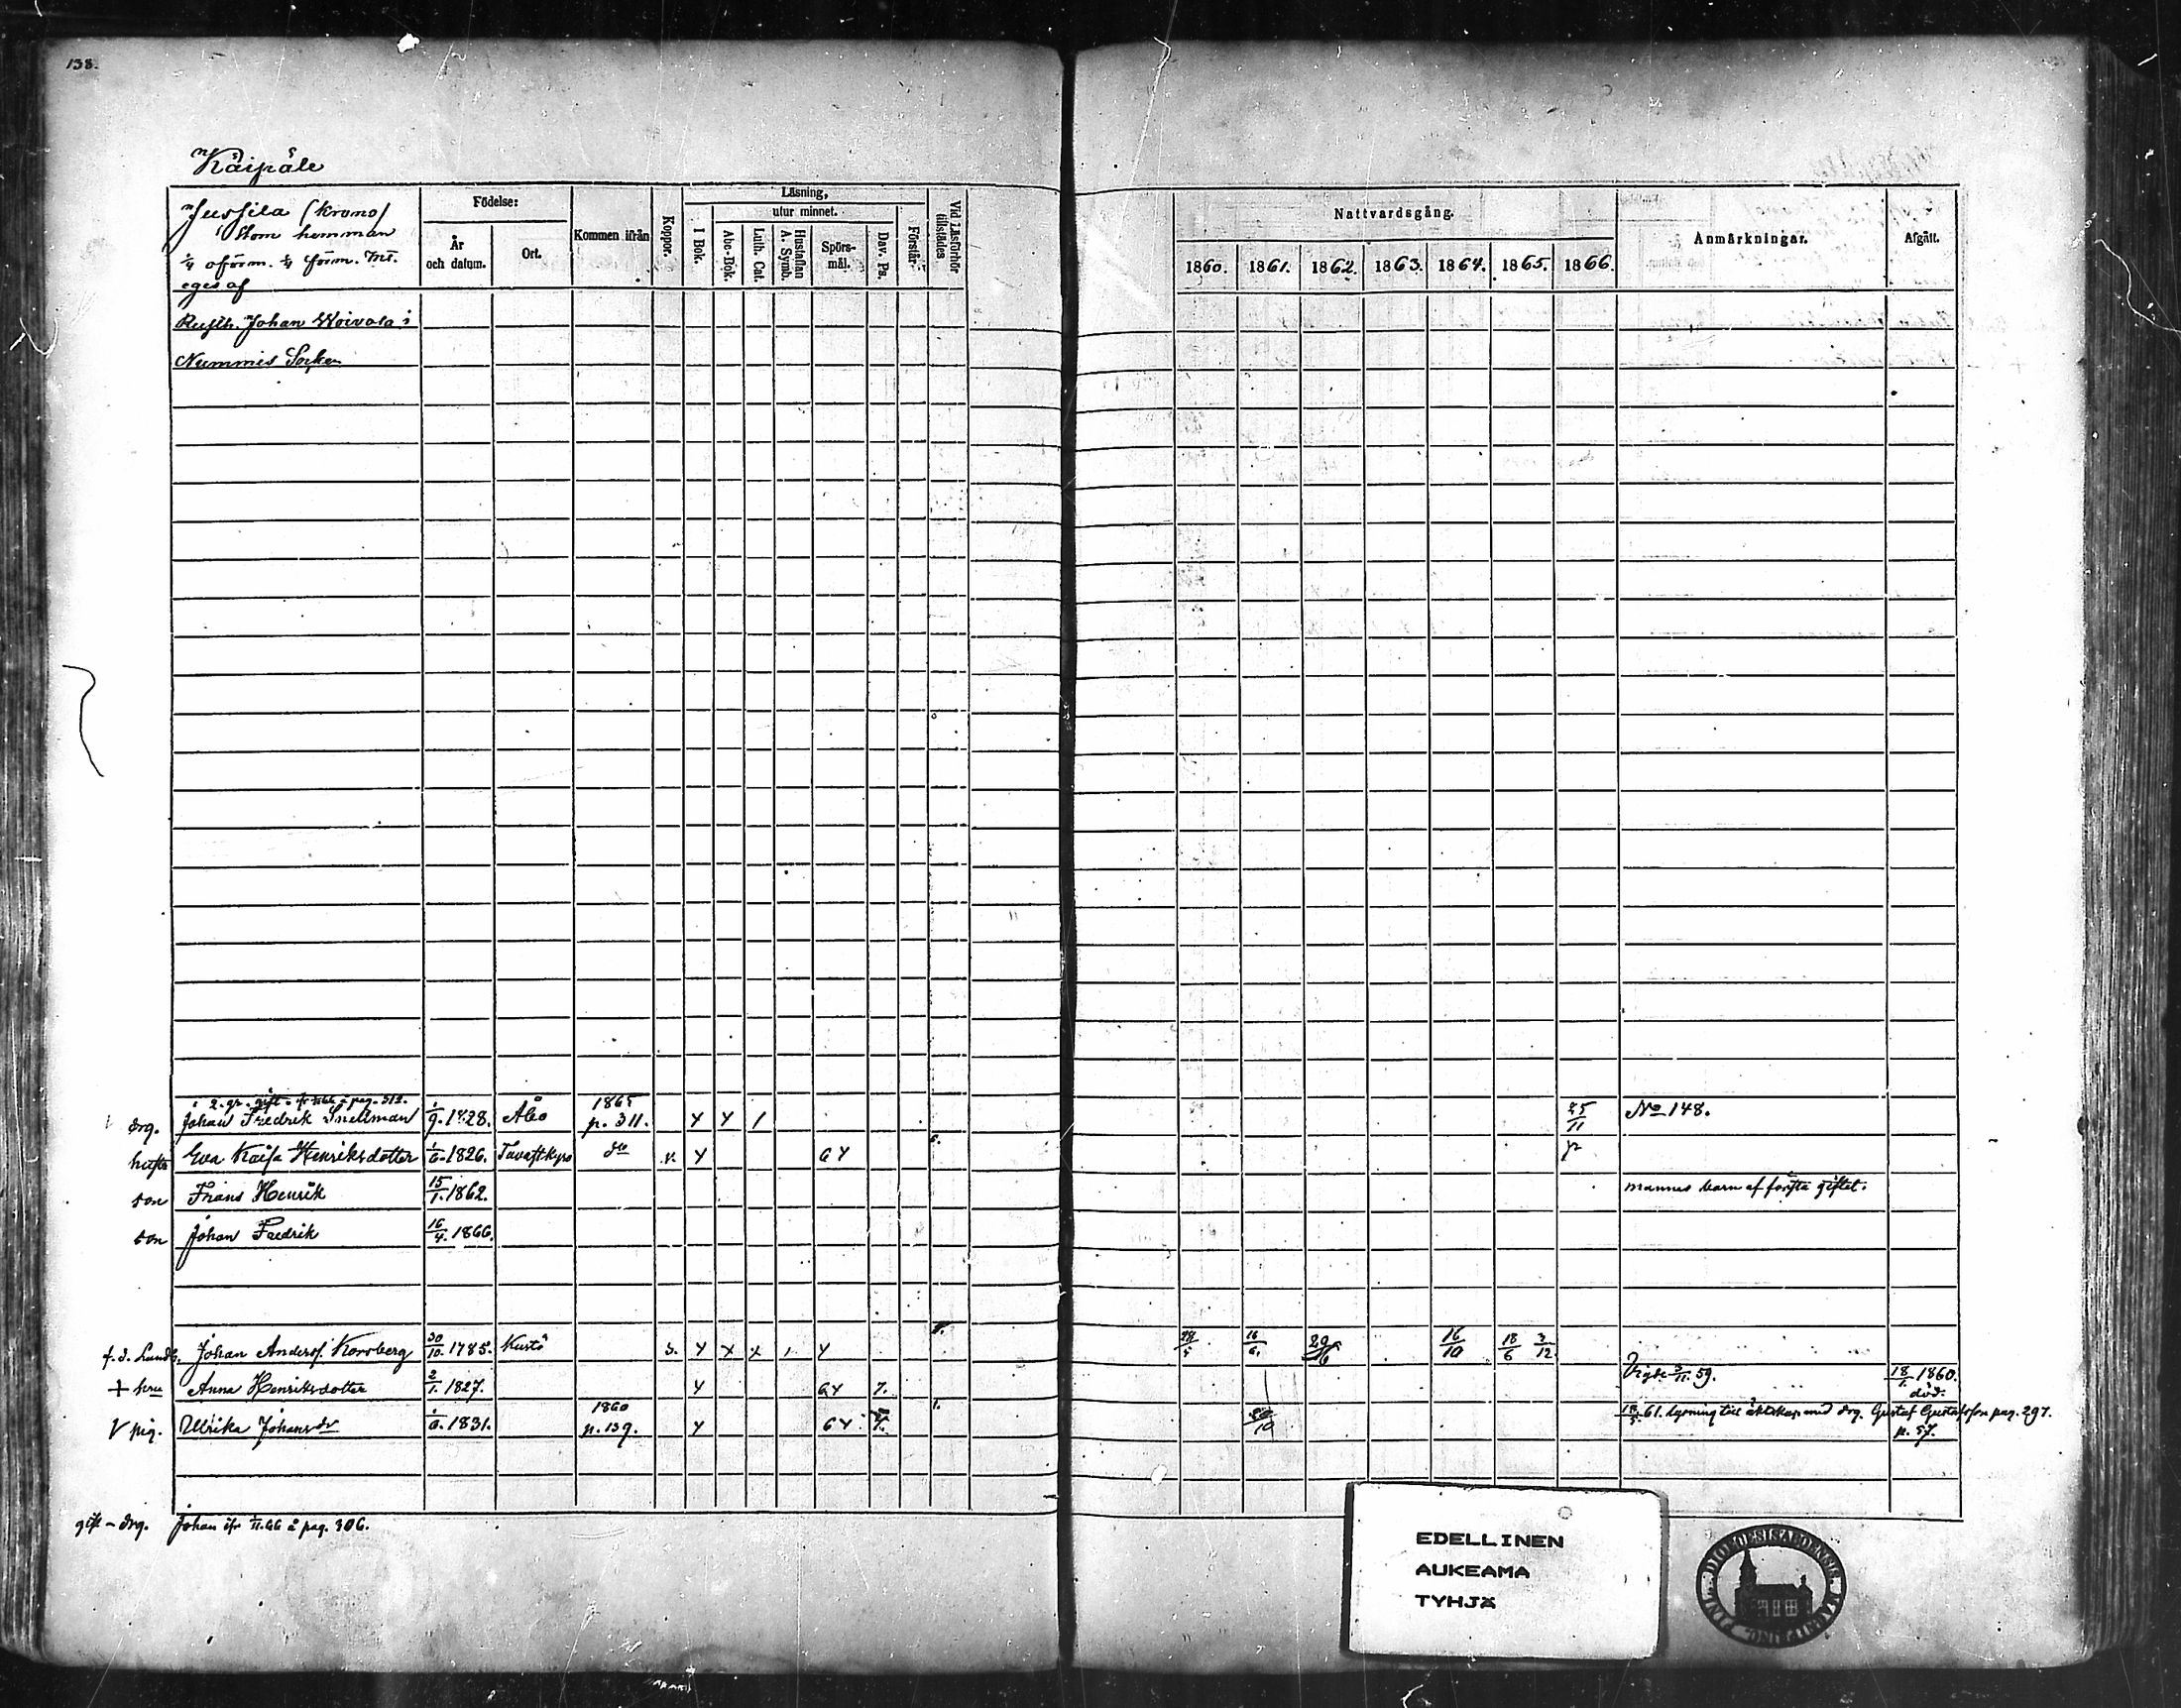 138.
Käipäle
Jussila (krono)
Stom hemman
¼ oförm. ¼ förm. mt.
eges af
Rusth. Johan Woivala i
Nummis Socken
Födelse:
År och datum.
Ort.
Kommen ifrån
Koppor.
Läsning,
I Bok.
utur minnet.
Abc-Bok.
Luth. Cat.
Hustaflan A. Symb.
Spörsmål.
Dav. Ps.
Förstår.
Vid Läsförhör tillstädes
Nattvardsgång.
1860. 1861. 1862. 1863. 1864. 1865. 1866.
Anmärkningar.
Afgått.
2. gr. gift å pag. 312.
drg. Johan Fredrik Snellman 1/9. 1828. Åbo 1865 p. 311. Y Y / 25/11 No 148.
hustr Eva Kaisa Henriksdotter 1826. Tavastkyro do v. Y GY
son Frans Henrik 15/1. 1862. mannes barn af första giftet.
son Johan Fredrik 16/4. 1866.
f.d. Landb. Johan Anderss. Korsberg 30/10. 1785. Kustö s. Y X X Y 16/6. 16/10 18/6 3/12
+ hru Anna Henriksdotter 2/1. 1827. Y GY 7. Vigde 59. 18/1. 1860. död.
V pig. Ulrika Johansdr 1831. 1860 p. 139. Y GY 61. lysning till äktskap med drg. Gustaf Gustafsson pag. 297.
p. 57.
gift – drg. Johan 66 å pag. 306.
EDELLINEN
AUKEAMA
TYHJÄ